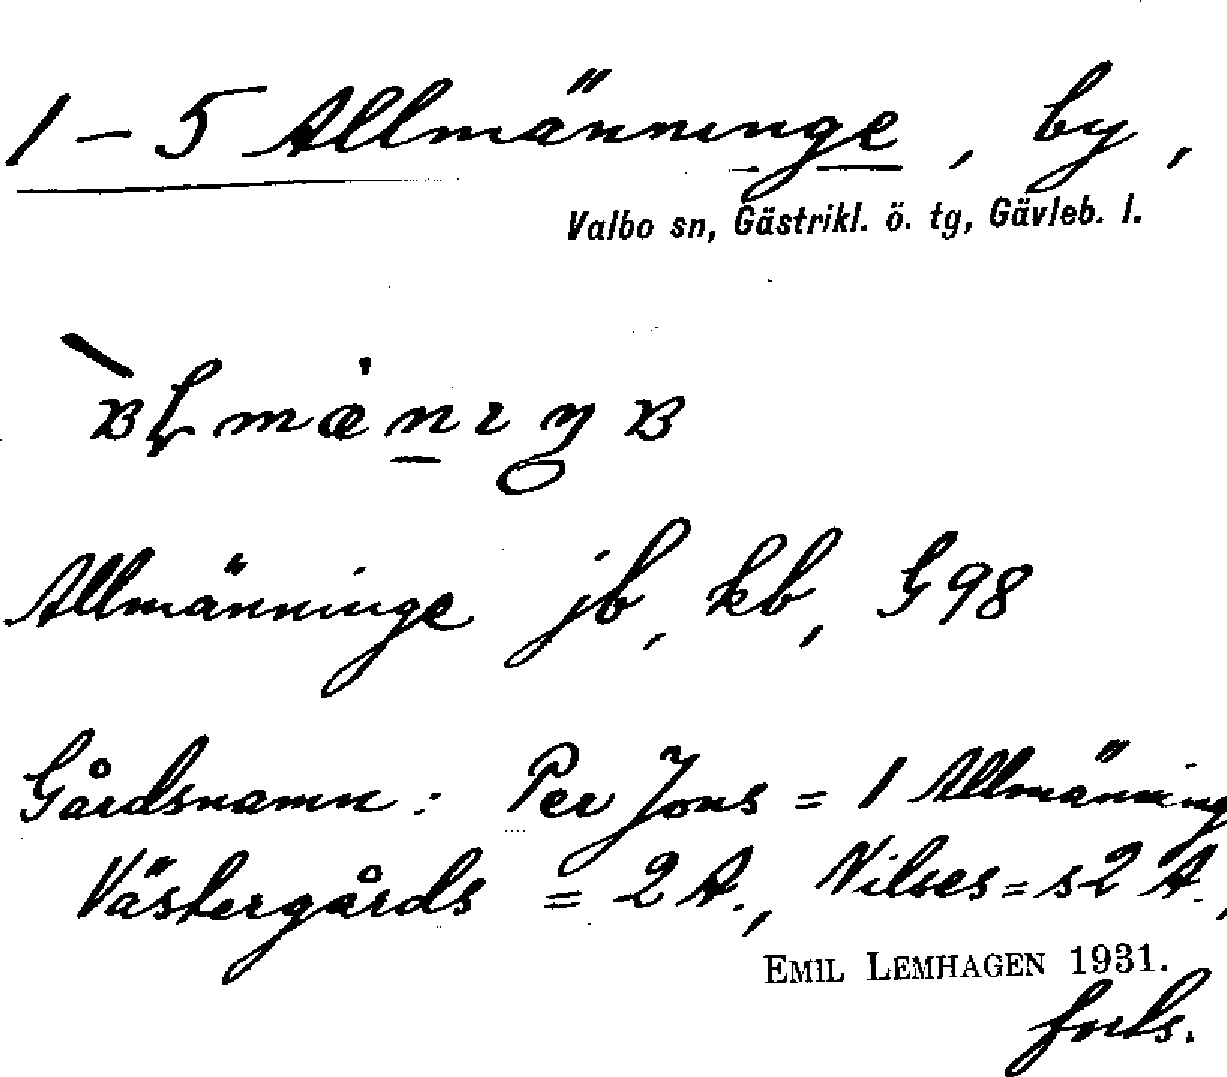 1 – 5 Allmänninge, by,
Valbo sn, Gästrikl. ö. tg, Gävleb. l.
Allmänninge jb, kb, G98
Gårdsnamn: Per Jons = 1 Allmänning
Västergårds = 2 A., Nilses = s2 A.,
EMIL LEMHAGEN 1931.
forts.